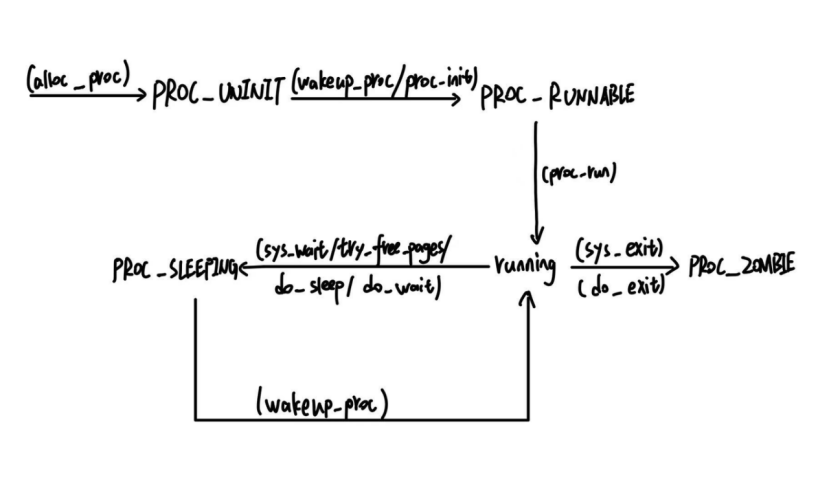 (alloc_proc)
PROC_UNINIT
(wakeup_proc/proc_init)
PROC_RUNNABLE
(proc_run)
PROC_SLEEPING
(sys_wait/try_free_pages/
do_sleep/ do_wait)
running
(sys_exit)
(do_exit)
PROC_ZOMBIE
(wakeup_proc)